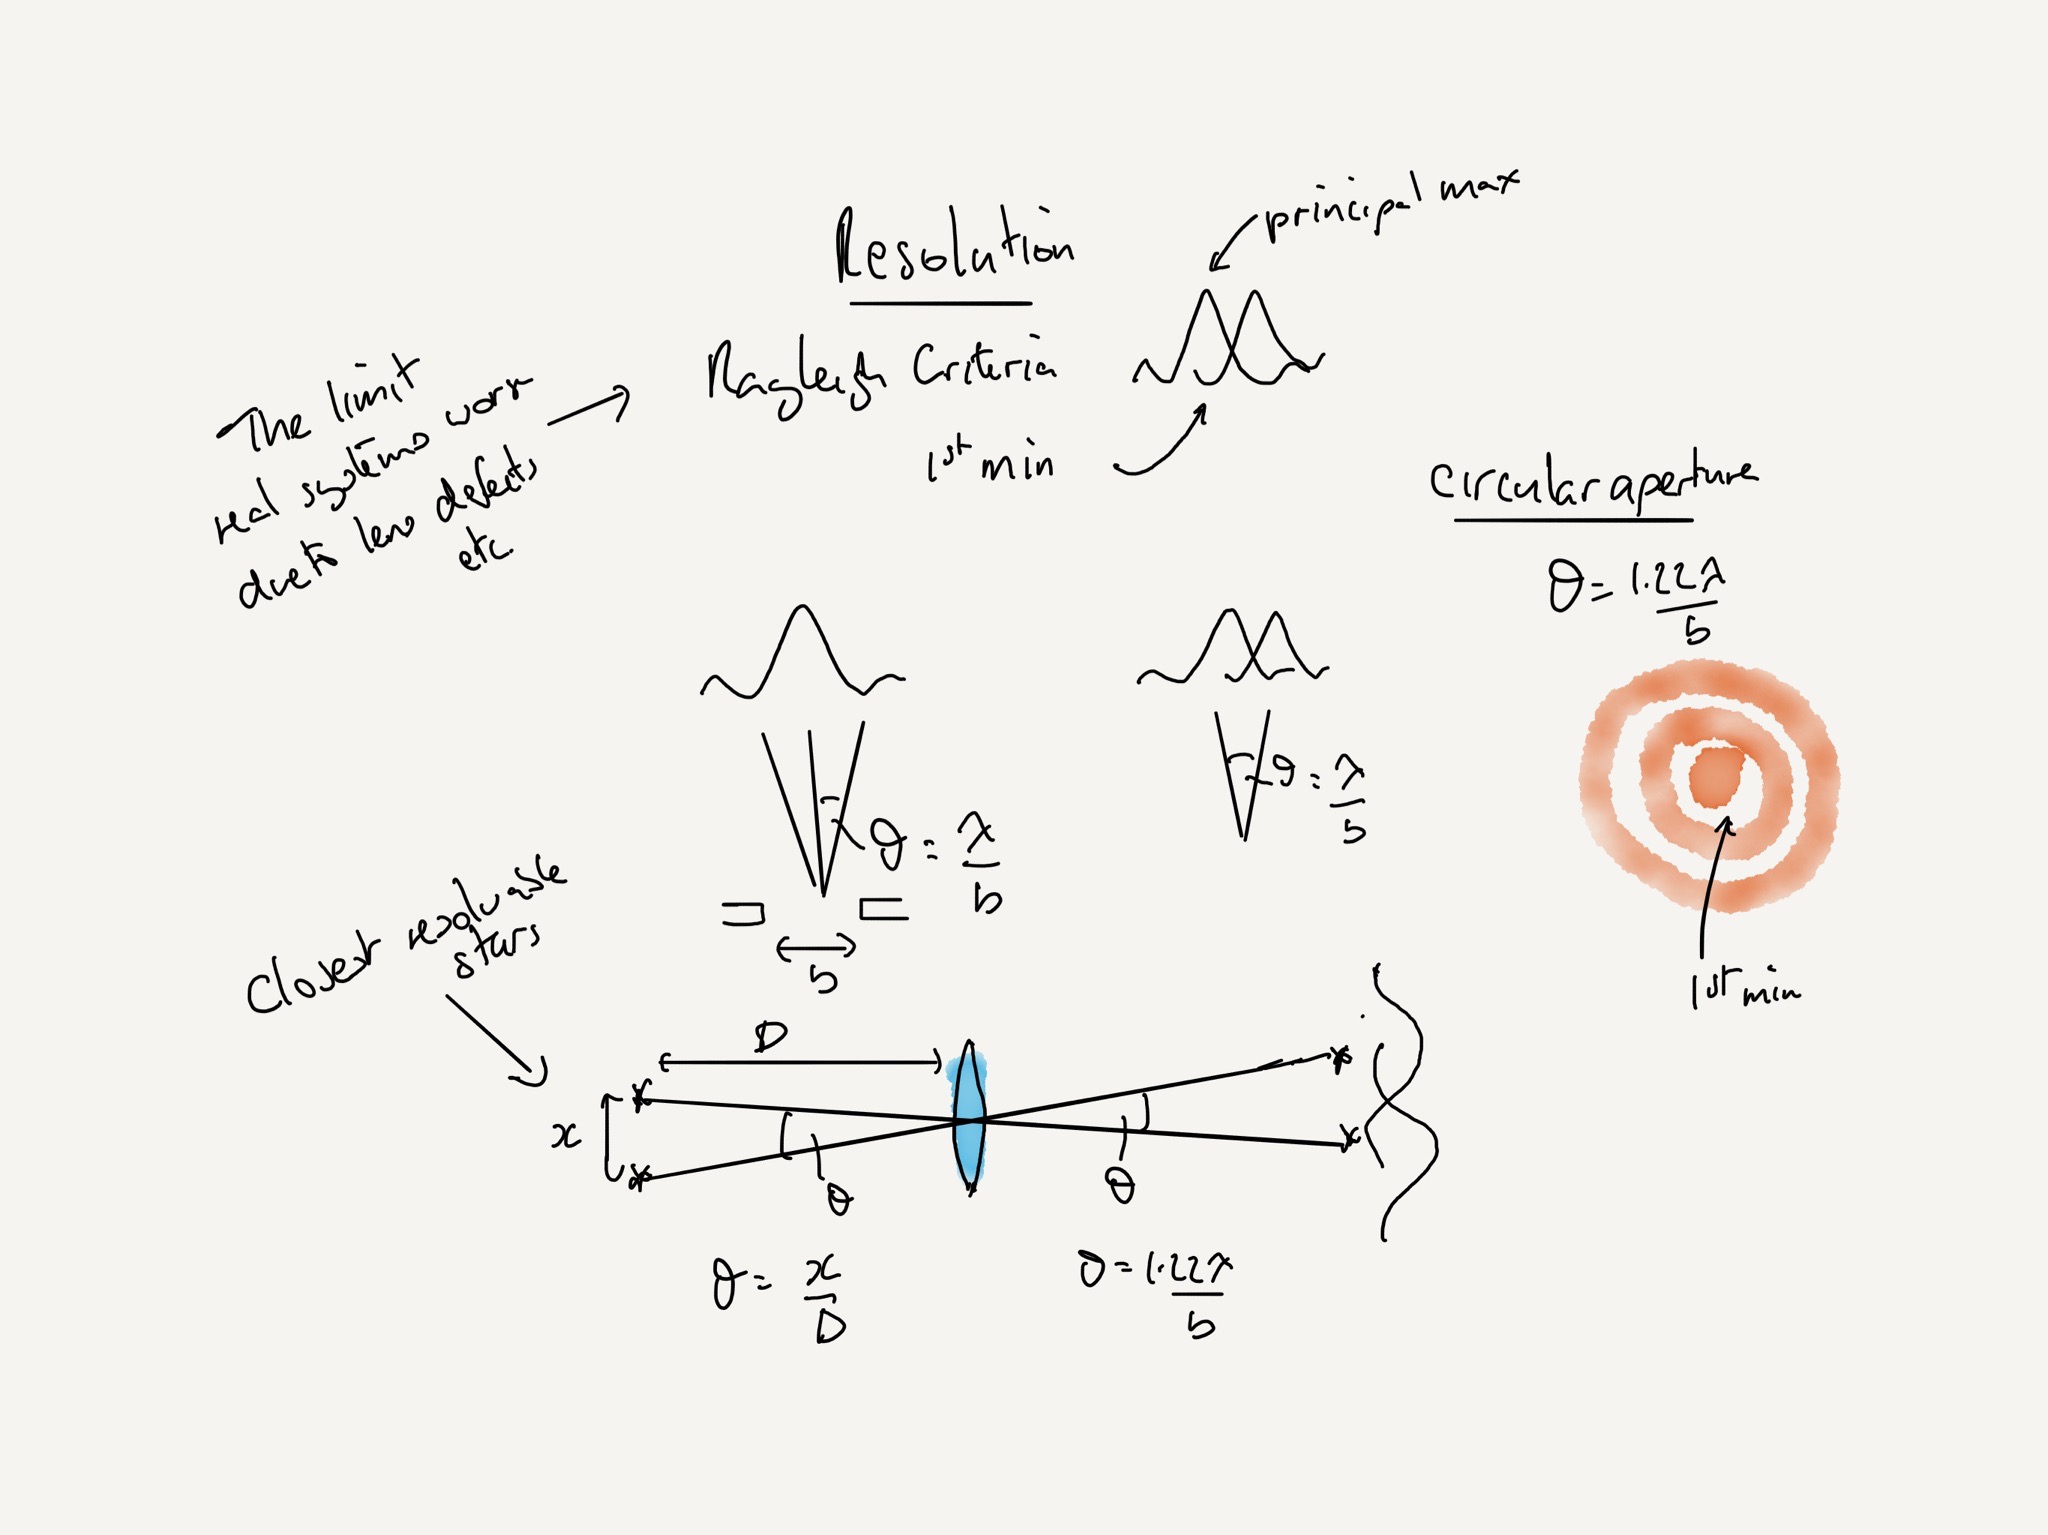 Resolution
principal max
Rayleigh Criteria
1st min
The limit
real systems worse
due to lens defects
etc.
circular aperture
θ = 1.22λ
b
θ = λ
b
b
θ = λ
b
1st min
Closest resolvable
stars
D
x
θ
θ
θ = x
D
θ = 1.22λ
b